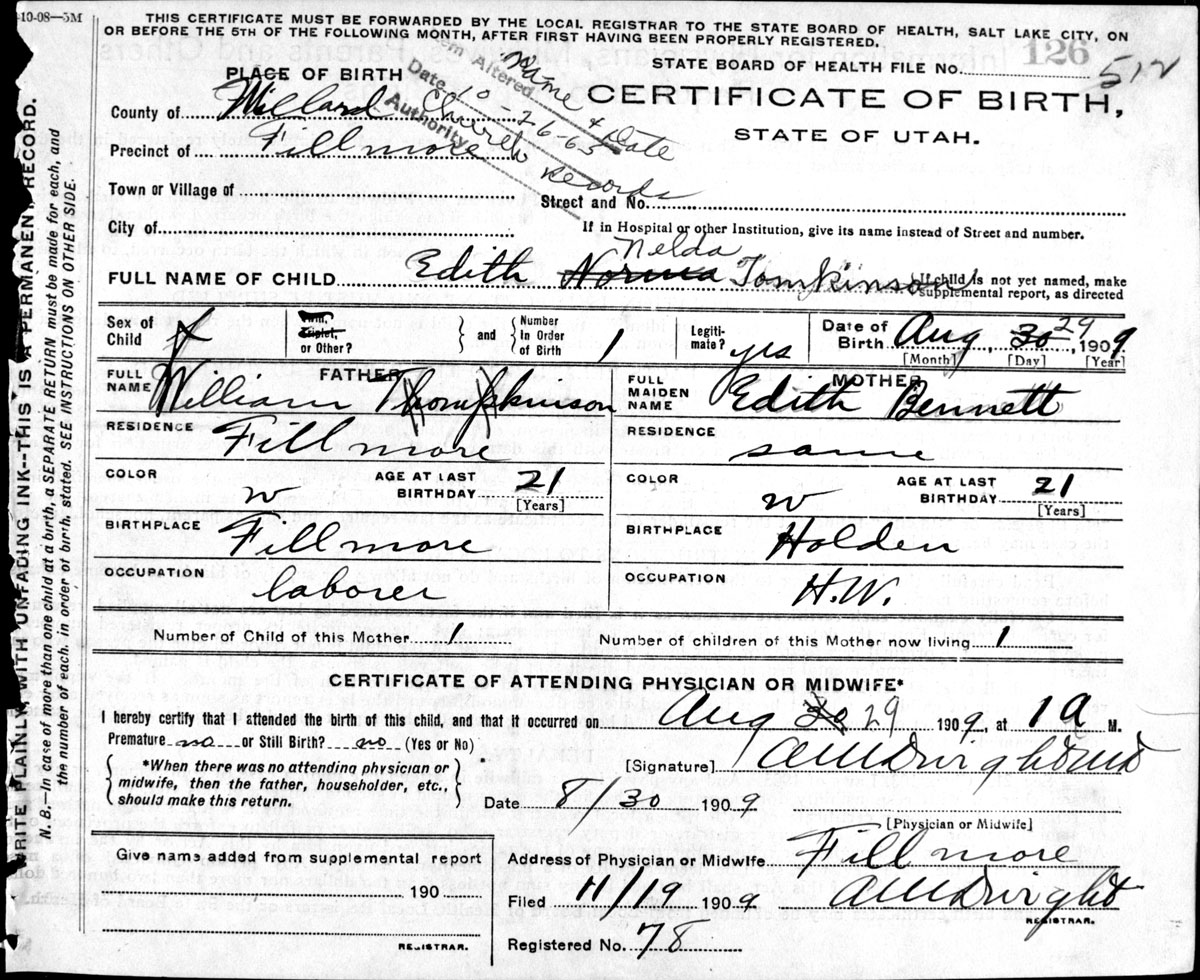 10-08—5M
THIS CERTIFICATE MUST BE FORWARDED BY THE LOCAL REGISTRAR TO THE STATE BOARD OF HEALTH, SALT LAKE CITY, ON
OR BEFORE THE 5TH OF THE FOLLOWING MONTH, AFTER FIRST HAVING BEEN PROPERLY REGISTERED.
STATE BOARD OF HEALTH FILE No. 126 512
Altered Name & Date
Date 2-6-63
Authority Church records
PLACE OF BIRTH
CERTIFICATE OF BIRTH,
STATE OF UTAH.
County of Millard
Precinct of Fillmore
Town or Village of
Street and No.
City of
If in Hospital or other Institution, give its name instead of Street and number.
Nelda
FULL NAME OF CHILD Edith Norma Tomkinson
If child is not yet named, make supplemental report, as directed
Sex of Child f
Twin, Triplet, or Other?
and
Number In Order of Birth 1
Legiti- mate? yes
Date of Birth Aug 30 29, 1909
[Month] [Day] [Year]
FATHER
FULL NAME William Thompkinson
MOTHER
FULL MAIDEN NAME Edith Bennett
RESIDENCE Fillmore
RESIDENCE same
COLOR w AGE AT LAST BIRTHDAY 21 [Years]
COLOR w AGE AT LAST BIRTHDAY 21 [Years]
BIRTHPLACE Fillmore
BIRTHPLACE Holden
OCCUPATION laborer
OCCUPATION H.W.
Number of Child of this Mother 1
Number of children of this Mother now living 1
CERTIFICATE OF ATTENDING PHYSICIAN OR MIDWIFE*
I hereby certify that I attended the birth of this child, and that it occurred on Aug 30 29 1909, at 1 a M.
Premature no or Still Birth? no (Yes or No)
*When there was no attending physician or midwife, then the father, householder, etc., should make this return.
[Signature]
Date 8/30 1909
[Physician or Midwife]
Give name added from supplemental report
190
REGISTRAR.
Address of Physician or Midwife Fillmore
Filed 11/19 1909
REGISTRAR.
Registered No. 78
WRITE PLAINLY, WITH UNFADING INK--THIS IS A PERMANENT RECORD.
N. B.—In case of more than one child at a birth, a SEPARATE RETURN must be made for each, and
the number of each. in order of birth, stated. SEE INSTRUCTIONS ON OTHER SIDE.